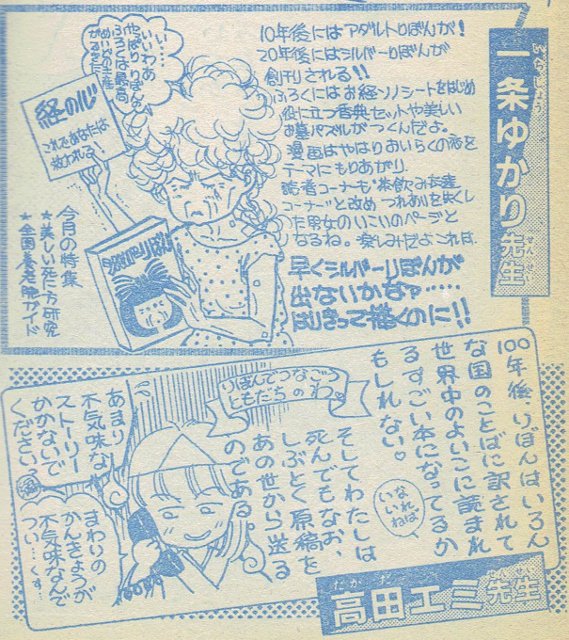 一条ゆかり先生
いちじょう
せんせい
10年後にはアダルトりぼんが!
20年後にはシルバーりぼんが
創刊される!!
ふろくにはお経ソノシートをはじめ
役に立つ香典セットや美しい
お墓パズルがつくんだよ。
漫画はやはりおいらくの恋を
テーマにもりあがり
読者コーナーも"茶飲み友達
コーナー"と改め つれあいを失くし
た男女のいこいのページと
なるね。楽しみだよこれは。
早くシルバーりぼんが
出ないかなァ……
はりきって描くのに!!
いいわあ
やっぱりりぼんの
ふろくは最高
めいどの土産
経の心
これであなたは
救われる!
今月の特集
★美しい死に方研究
★全国養老院ガイド
100年後、りぼんはいろん
な国のことばに訳されて
世界中のよいこに読まれ
るすごい本になってるか
もしれない♡
なれれば
いいね
りぼんでつなごう
ともだちのわ。
そしてわたしは
死んでもなお、
しぶとく原稿を
あの世から送る
のである。
あまり
不気味な
ストーリー
かかないで
ください。
まわりの
かんきょうが
不気味なんで
つい…くす。
高田エミ先生
たかだ
せんせい